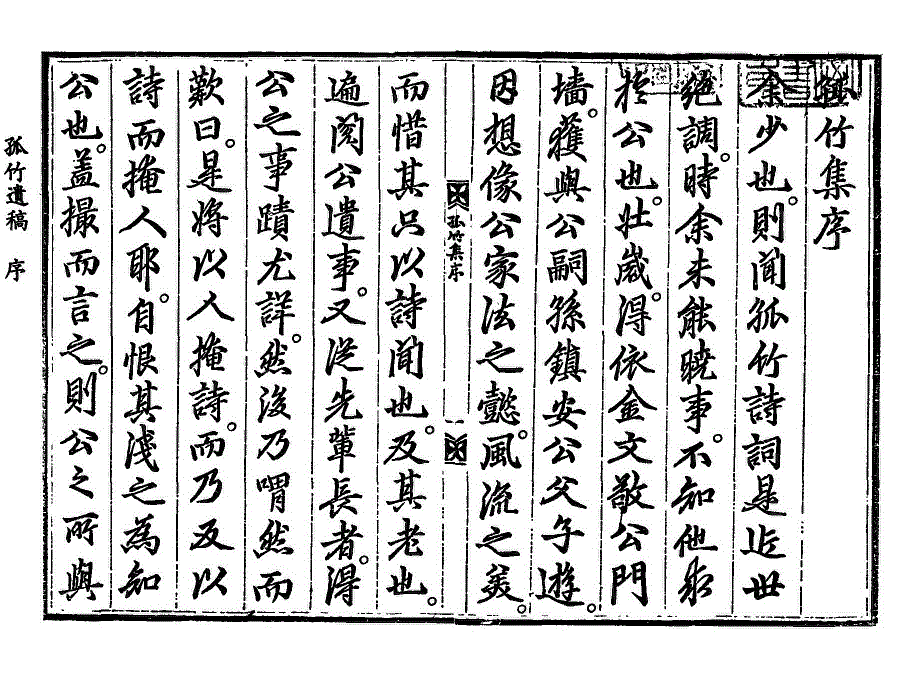 孤竹集序
余少也。則聞孤竹詩詞是近世
絕調。時余未能曉事。不知他求
於公也。壯歲。得依金文敬公門
墻。獲與公嗣孫鎭安公父子遊。
因想像公家法之懿。風流之美。
而惜其只以詩聞也。及其老也。
遍閱公遺事。又從先輩長者。得
公之事蹟尤詳。然後乃喟然而
歎曰。是將以人掩詩。而乃反以
詩而掩人耶。自恨其淺之爲知
公也。蓋撮而言之。則公之所與
孤竹集序
孤竹遺稿 序